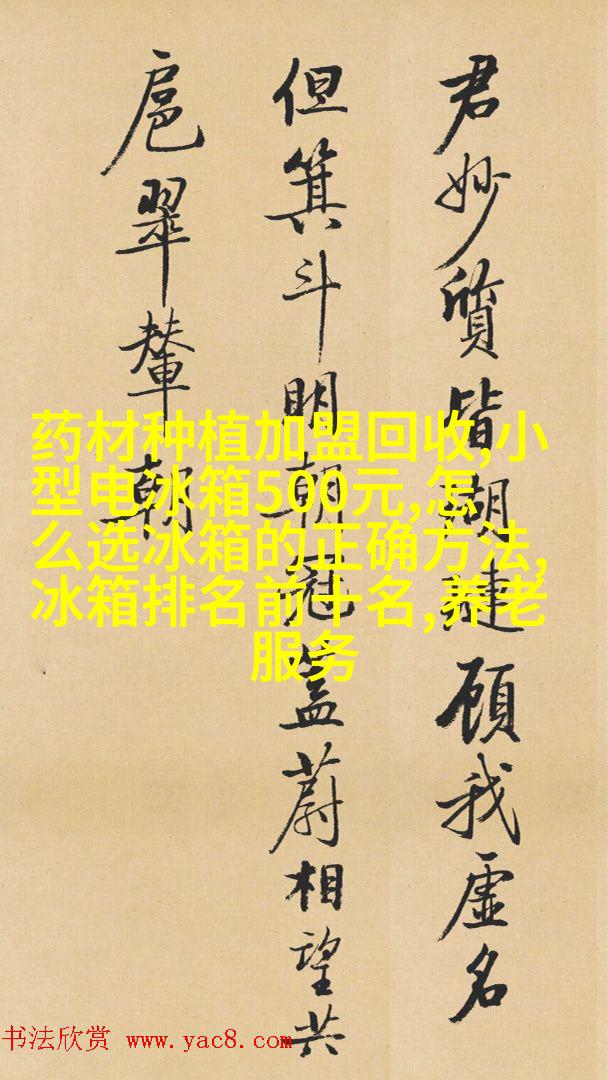 君妙質皆瑚璉顧我虛名
但箕斗明朝冠蓋蔚相望共
扈翠輦朝
药材种植加盟回收,小
型电冰箱500元,怎
么选冰箱的正确方法,
冰箱排名前十名,养老
服务
书法欣赏 www.yac8.com